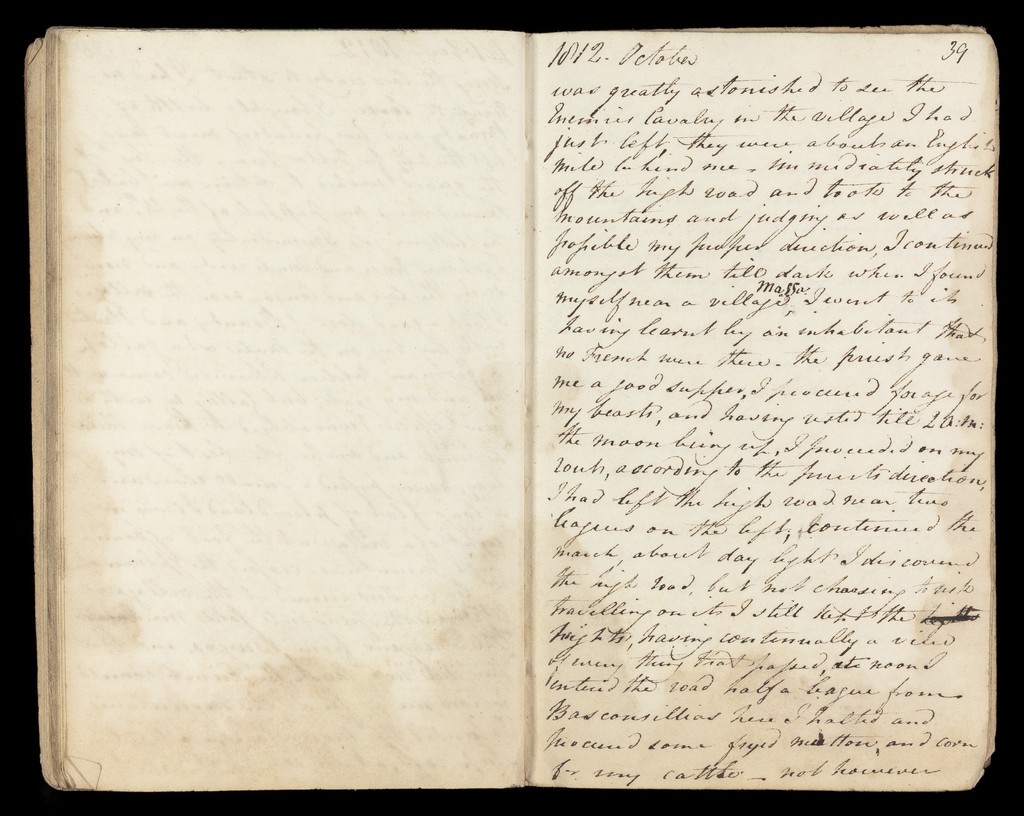 1812. October 39
was greatly astonished to see the
Enemies Cavalry in the village I had
just left, they were about an English
mile behind me - immediately struck
off the high road and took to the
mountains and judging as well as
possible my proper direction, I continued
amongst them till dark when I found
Massa
myself near a village, I went to it
having learnt by an inhabitant that
no French were there - the priest gave
me a good supper, I procured forage for
my beasts, and having rested till 2 a:m:
the moon being up, I proceeded on my
route, according to the priests direction,
I had left the high road near two
leagues on the left, continued the
march, about day light I discovered
the high road, but not choosing to risk
travelling on it I still kept the
hights, having continually a view
of every thing that passed, at noon I
entered the road half a league from
Basconsillias here I halted and
procured some fryed mutton, and corn
for my cattle - not however